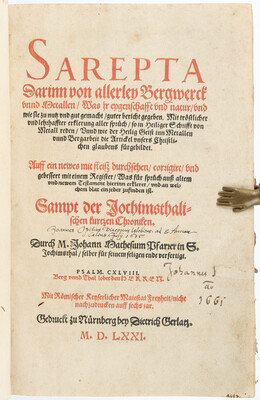 SAREPTA
Darinn von allerley Bergwerck
vnnd Metallen / Was jr eygenschafft vnd natur / vnd
wie sie zu nutz vnd gut gemacht / guter bericht gegeben. Mit tröstlicher
vnd lehrhaffter erklerung aller sprüch / so in Heiliger Schrifft von
Metall reden / Vnnd wie der Heilig Geist inn Metallen
vnnd Bergarbeit die Artickel vnsers Christli-
chen glaubens fürgebildet.
Auff ein newes mit fleiß durchsehen / corrigirt / vnd
gebessert mit einem Register / Was für sprüch auß altem
vnd newem Testament hierinn erkleret / vnd an wel-
chen blat ein jeder zufinden ist.
Sampt der Jochimsthali-
schen kurtzen Chroniken.
Durch M. Johann Mathesium Pfarer in S.
Jochimsthal / selber für seinem seligen ende verfertigt.
PSALM. CXLVIII.
Berg vnnd Thal lobet den HERREN.
Johannes
Mit Römischer Keyserlicher Maiestat Freyheit / nicht
nachzudrucken auff sechs jar.
Gedruckt zu Nürnberg bey Dietrich Gerlatz.
M. D. LXXI.